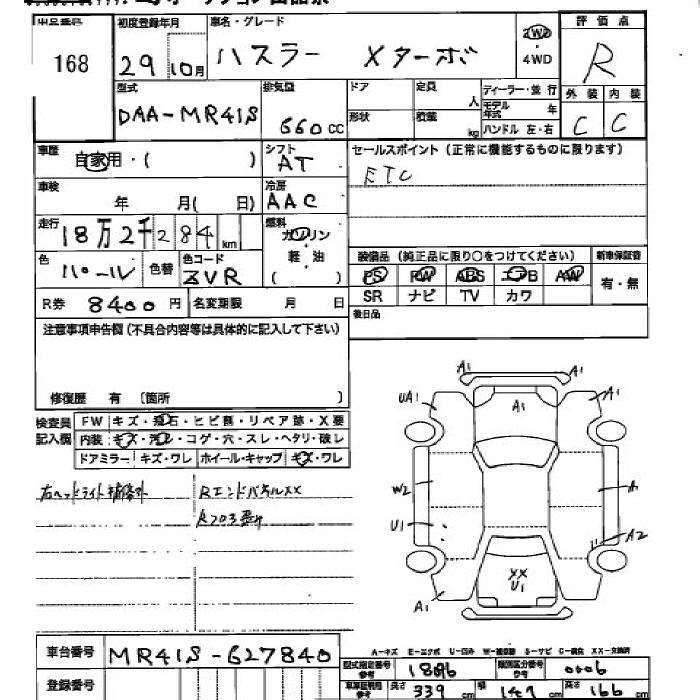 168
初度登録年月
29 10月
車名・グレード
ハスラー Xターボ
2WD
・
4WD
評価点
R
外装 内装
C C
型式
DAA-MR41S
排気量
660 cc
ドア
定員
人
形状
積載
kg
ディーラー・並行
モデル年式 年
ハンドル 左・右
車歴
自家用・( )
シフト
AT
セールスポイント(正常に機能するものに限ります)
ETC
車検
年 月( 日)
冷房
AAC
走行
18万2千284 km
燃料
ガソリン
・
軽・油
( )
色
パール
色替
色コード
ZVR
装備品(純正品に限り○をつけてください)
新車保証書
PS PW ABS エアB AW
有・無
SR ナビ TV カワ
R券 8400 円
名変期限 月 日
後日品
注意事項申告欄(不具合内容等は具体的に記入して下さい)
修復歴 有 〔箇所 〕
検査員記入欄
FW キズ・飛石・ヒビ割・リペア跡・X要
内装 キズ・汚レ・コゲ・穴・スレ・ヘタリ・破レ
ドアミラー キズ・ワレ ホイール・キャップ キズ・ワレ
右ヘッドライト
RエンドパネルXX
A1 A1
UA1 A1 A1
W2 A
U1 A2
XX
U1
A1
A-キズ E-エクボ U-凹み W-補修跡 S-サビ C-腐食 XX-交換済
車台番号 MR41S-627840
登録番号
型式指定番号 18696
類別区分番号 0006
長さ 339 cm 幅 147 cm 高さ 166 cm